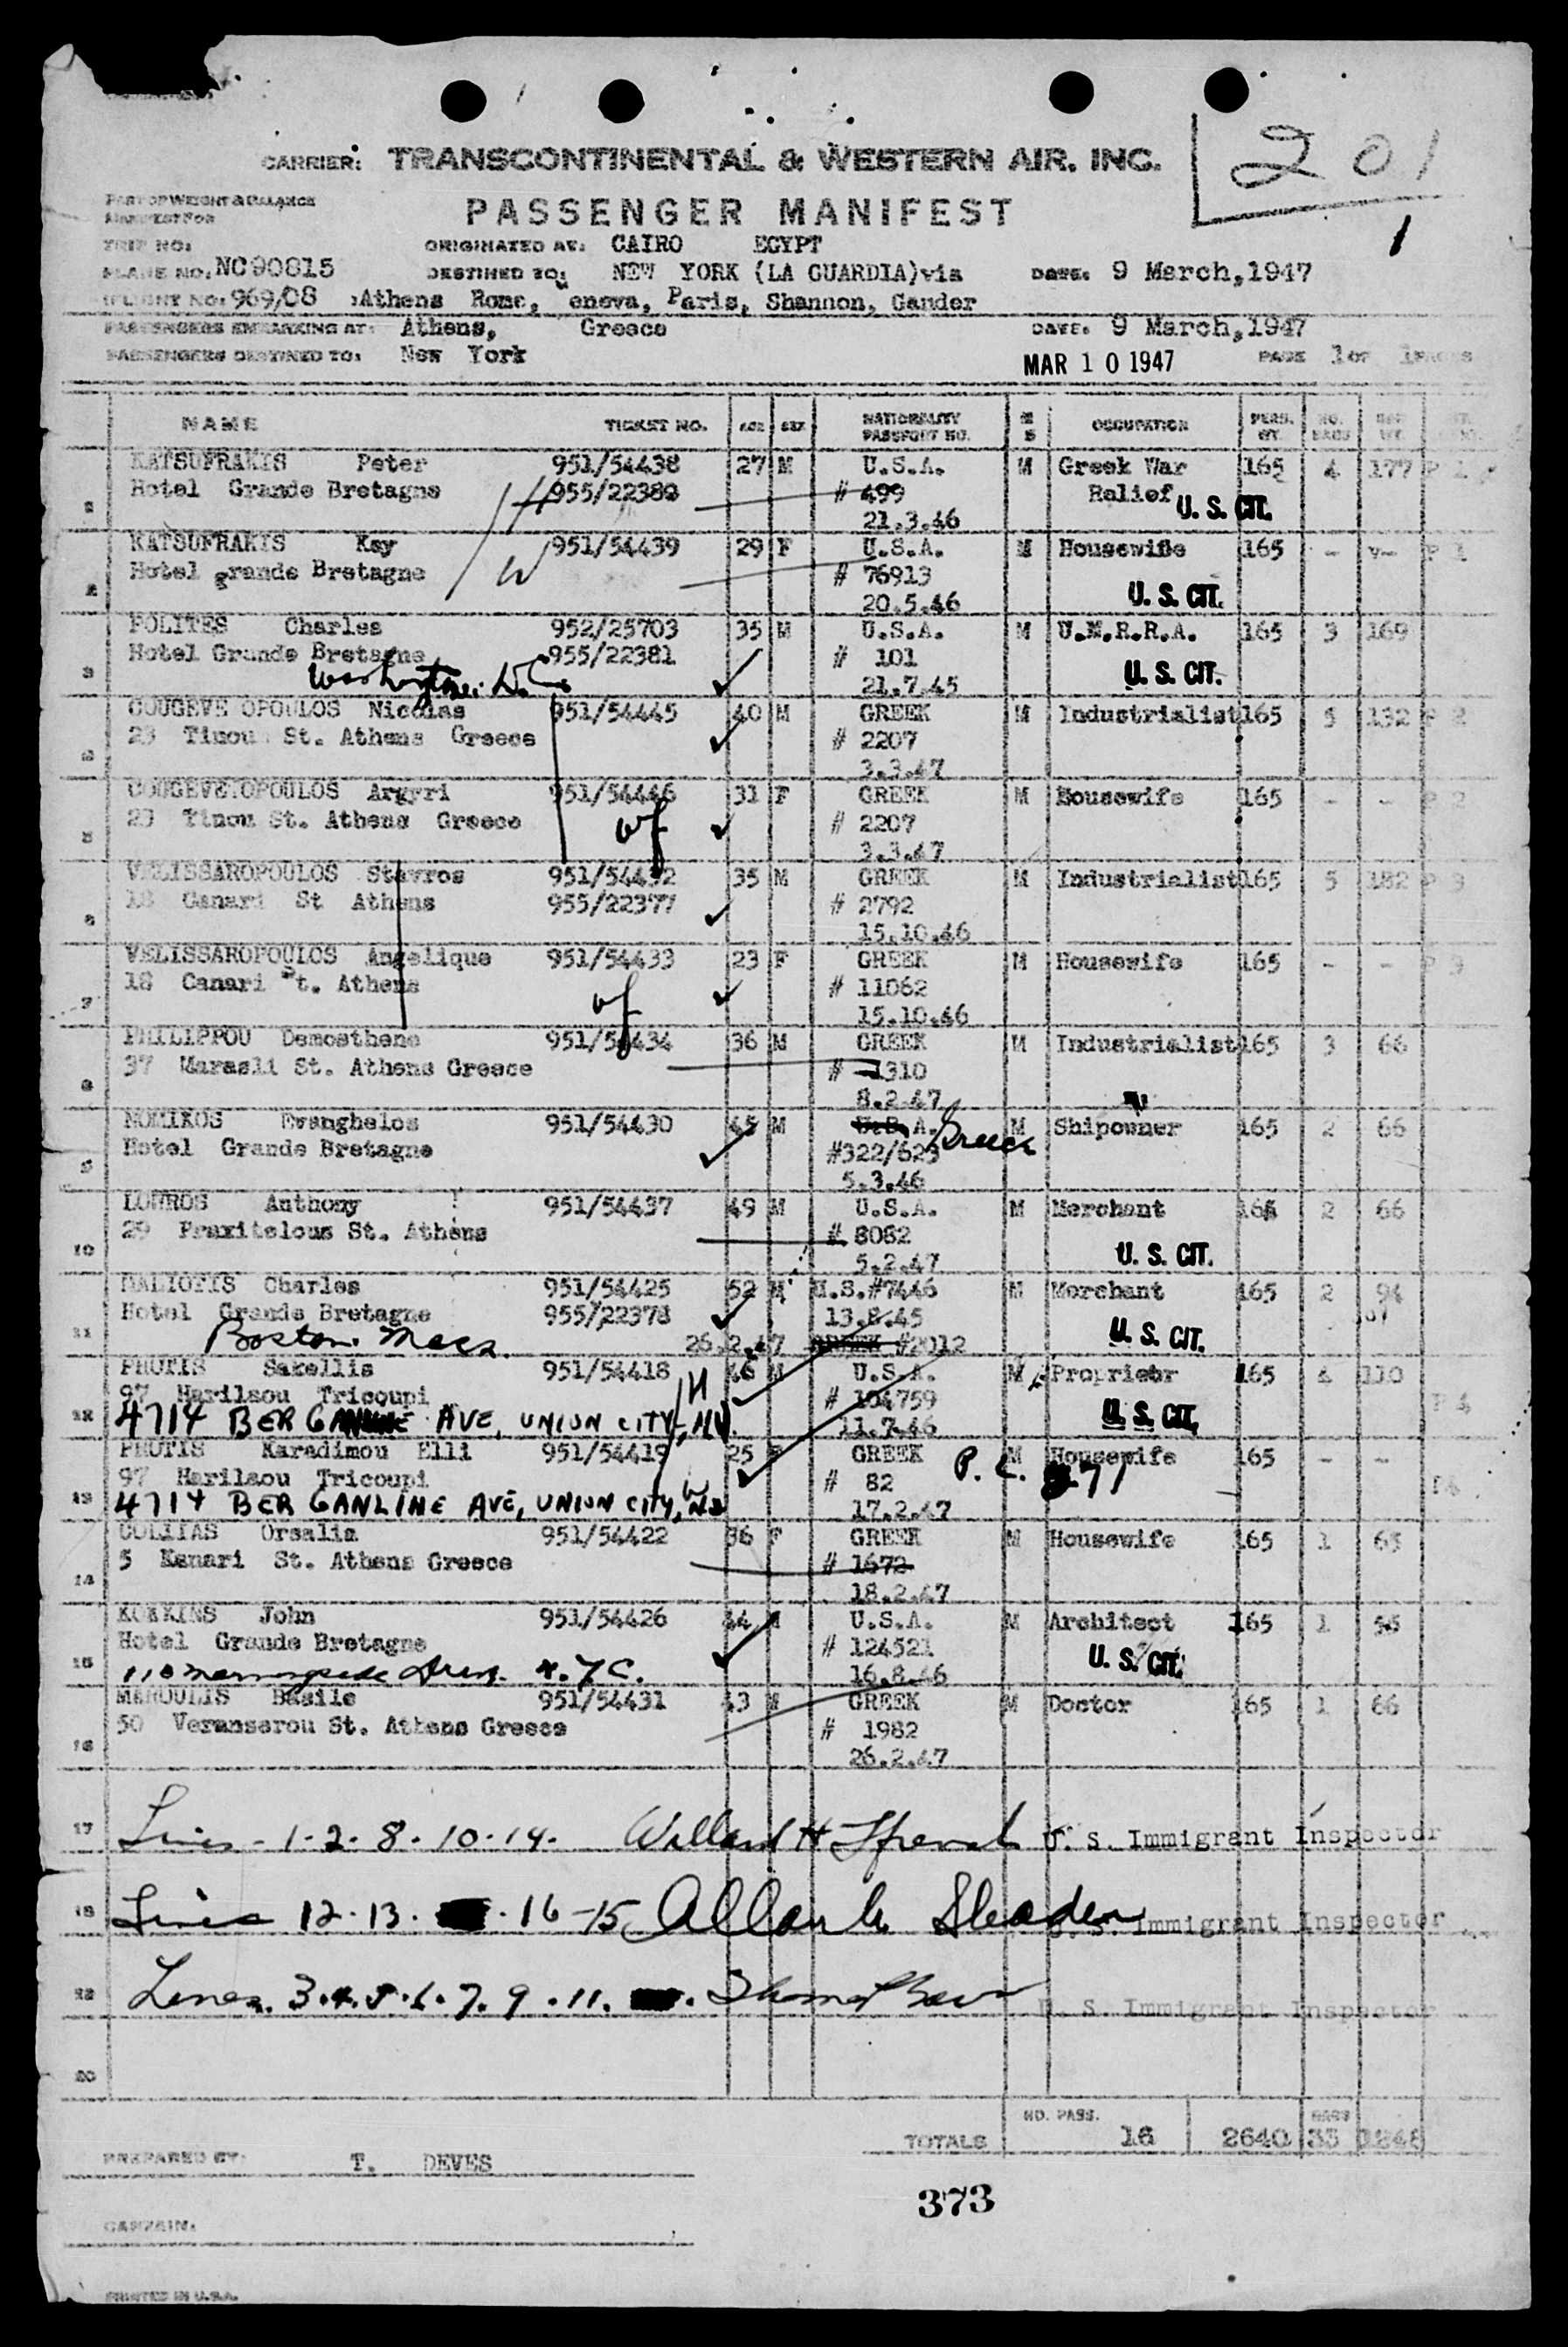 CARRIER: TRANSCONTINENTAL & WESTERN AIR. INC.
201
PART OF WEIGHT & BALANCE
MANIFEST FOR
PASSENGER MANIFEST
1
TRIP NO: ORIGINATED AT: CAIRO EGYPT
PLANE NO. NC90815 DESTINED TO: NEW YORK (LA GUARDIA) via DATE. 9 March, 1947
FLIGHT NO. 969/08 :Athens Rome, eneva, Paris, Shannon, Gander
PASSENGERS EMBARKING AT: Athens, Greece DATE. 9 March, 1947
PASSENGERS DESTINED TO: New York MAR 10 1947 PAGE 1 OF 1 PAGES
NAME TICKET NO. AGE SEX NATIONALITY PASSPORT NO. M S OCCUPATION PERS. WT. NO. BAGS
1 KATSUFRAKIS Peter 951/54438 27 M U.S.A. M Greek War 165 4 177 P 1
Hotel Grande Bretagne H 955/22380 # 499 Relief U. S. CIT.
21.3.46
2 KATSUFRAKIS Kay 951/54439 29 F U.S.A. M Housewife 165 - - P 1
Hotel grande Bretagne W # 76913
20.5.46 U. S. CIT.
3 POLITES Charles 952/25703 35 M U.S.A. M U.N.R.R.A. 165 3 169
Hotel Grande Bretagne 955/22381 # 101
Washington. D.C. 21.7.45 U. S. CIT.
4 COUGEVE OPOULOS Nicolas 951/54445 40 M GREEK M Industrialist 165 5 132 P 2
23 Tinou St. Athens Greece # 2207
3.3.47
5 COUGEVETOPOULOS Argyri 951/54446 31 F GREEK M Housewife 165 - - P 2
23 Tinou St. Athens Greece wf # 2207
3.3.47
6 VELISSAROPOULOS Stavros 951/54432 35 M GREEK M Industrialist 165 5 182 P 3
18 Canari St Athens 955/22377 # 2792
15.10.46
7 VELISSAROPOULOS Angelique 951/54433 23 F GREEK M Housewife 165 - - P 3
18 Canari St. Athens wf # 11062
15.10.46
8 PHILIPPOU Demosthene 951/54434 36 M GREEK M Industrialist 165 3 66
37 Marasli St. Athens Greece # 1310
8.2.47
9 NOMIKOS Evanghelos 951/54430 45 M U.S.A. Greece M Shipowner 165 2 66
Hotel Grande Bretagne #322/623
5.3.46
10 LOUROS Anthony 951/54437 49 M U.S.A. M Merchant 165 2 66
29 Praxitelous St. Athens # 8082
5.2.47 U. S. CIT.
11 DALIOTIS Charles 951/54425 52 M U.S.#7446 M Merchant 165 2 94
Hotel Grande Bretagne 955/22378 13.8.45
Boston. Mass. 26.2.47 GREEK #2012 U. S. CIT.
12 PHOTIS Sakellis 951/54418 46 M U.S.A. M Proprietr 165 4 110
97 Harilaou Tricoupi H # 104759 P 4
4714 BERGANLINE AVE, UNION CITY, 11.7.46 U. S. CIT.
13 PHOTIS Karadimou Elli 951/54419 25 F GREEK M Housewife 165 - -
97 Harilaou Tricoupi # 82 P. C. 271
4714 BERGANLINE AVE, UNION CITY, W NJ 17.2.47
14 COLLIAS Orsalia 951/54422 36 F GREEK M Housewife 165 1 65
5 Kanari St. Athens Greece # 1672
18.2.47
15 KOKKINS John 951/54426 44 M U.S.A. M Architect 165 1
Hotel Grande Bretagne # 124521
110 Morningside Drive. N.Y.C. 16.8.46 U. S. CIT.
16 MEROULIS Basile 951/54431 43 M GREEK M Doctor 165 1 66
50 Veranserou St. Athens Greece # 1982
26.2.47
17 Lines - 1.2.8.10.14. Willard H U. S. Immigrant Inspector
Lines 12.13. .16-15 U. S. Immigrant Inspector
Lines. 3.4.5.6.7.9.11. U. S. Immigrant Inspector
20
TOTALS NO. PASS. 16 2640 BAGS 33 1248
PREPARED BY: T. DEVES
373
CAPTAIN:
PRINTED IN U.S.A.